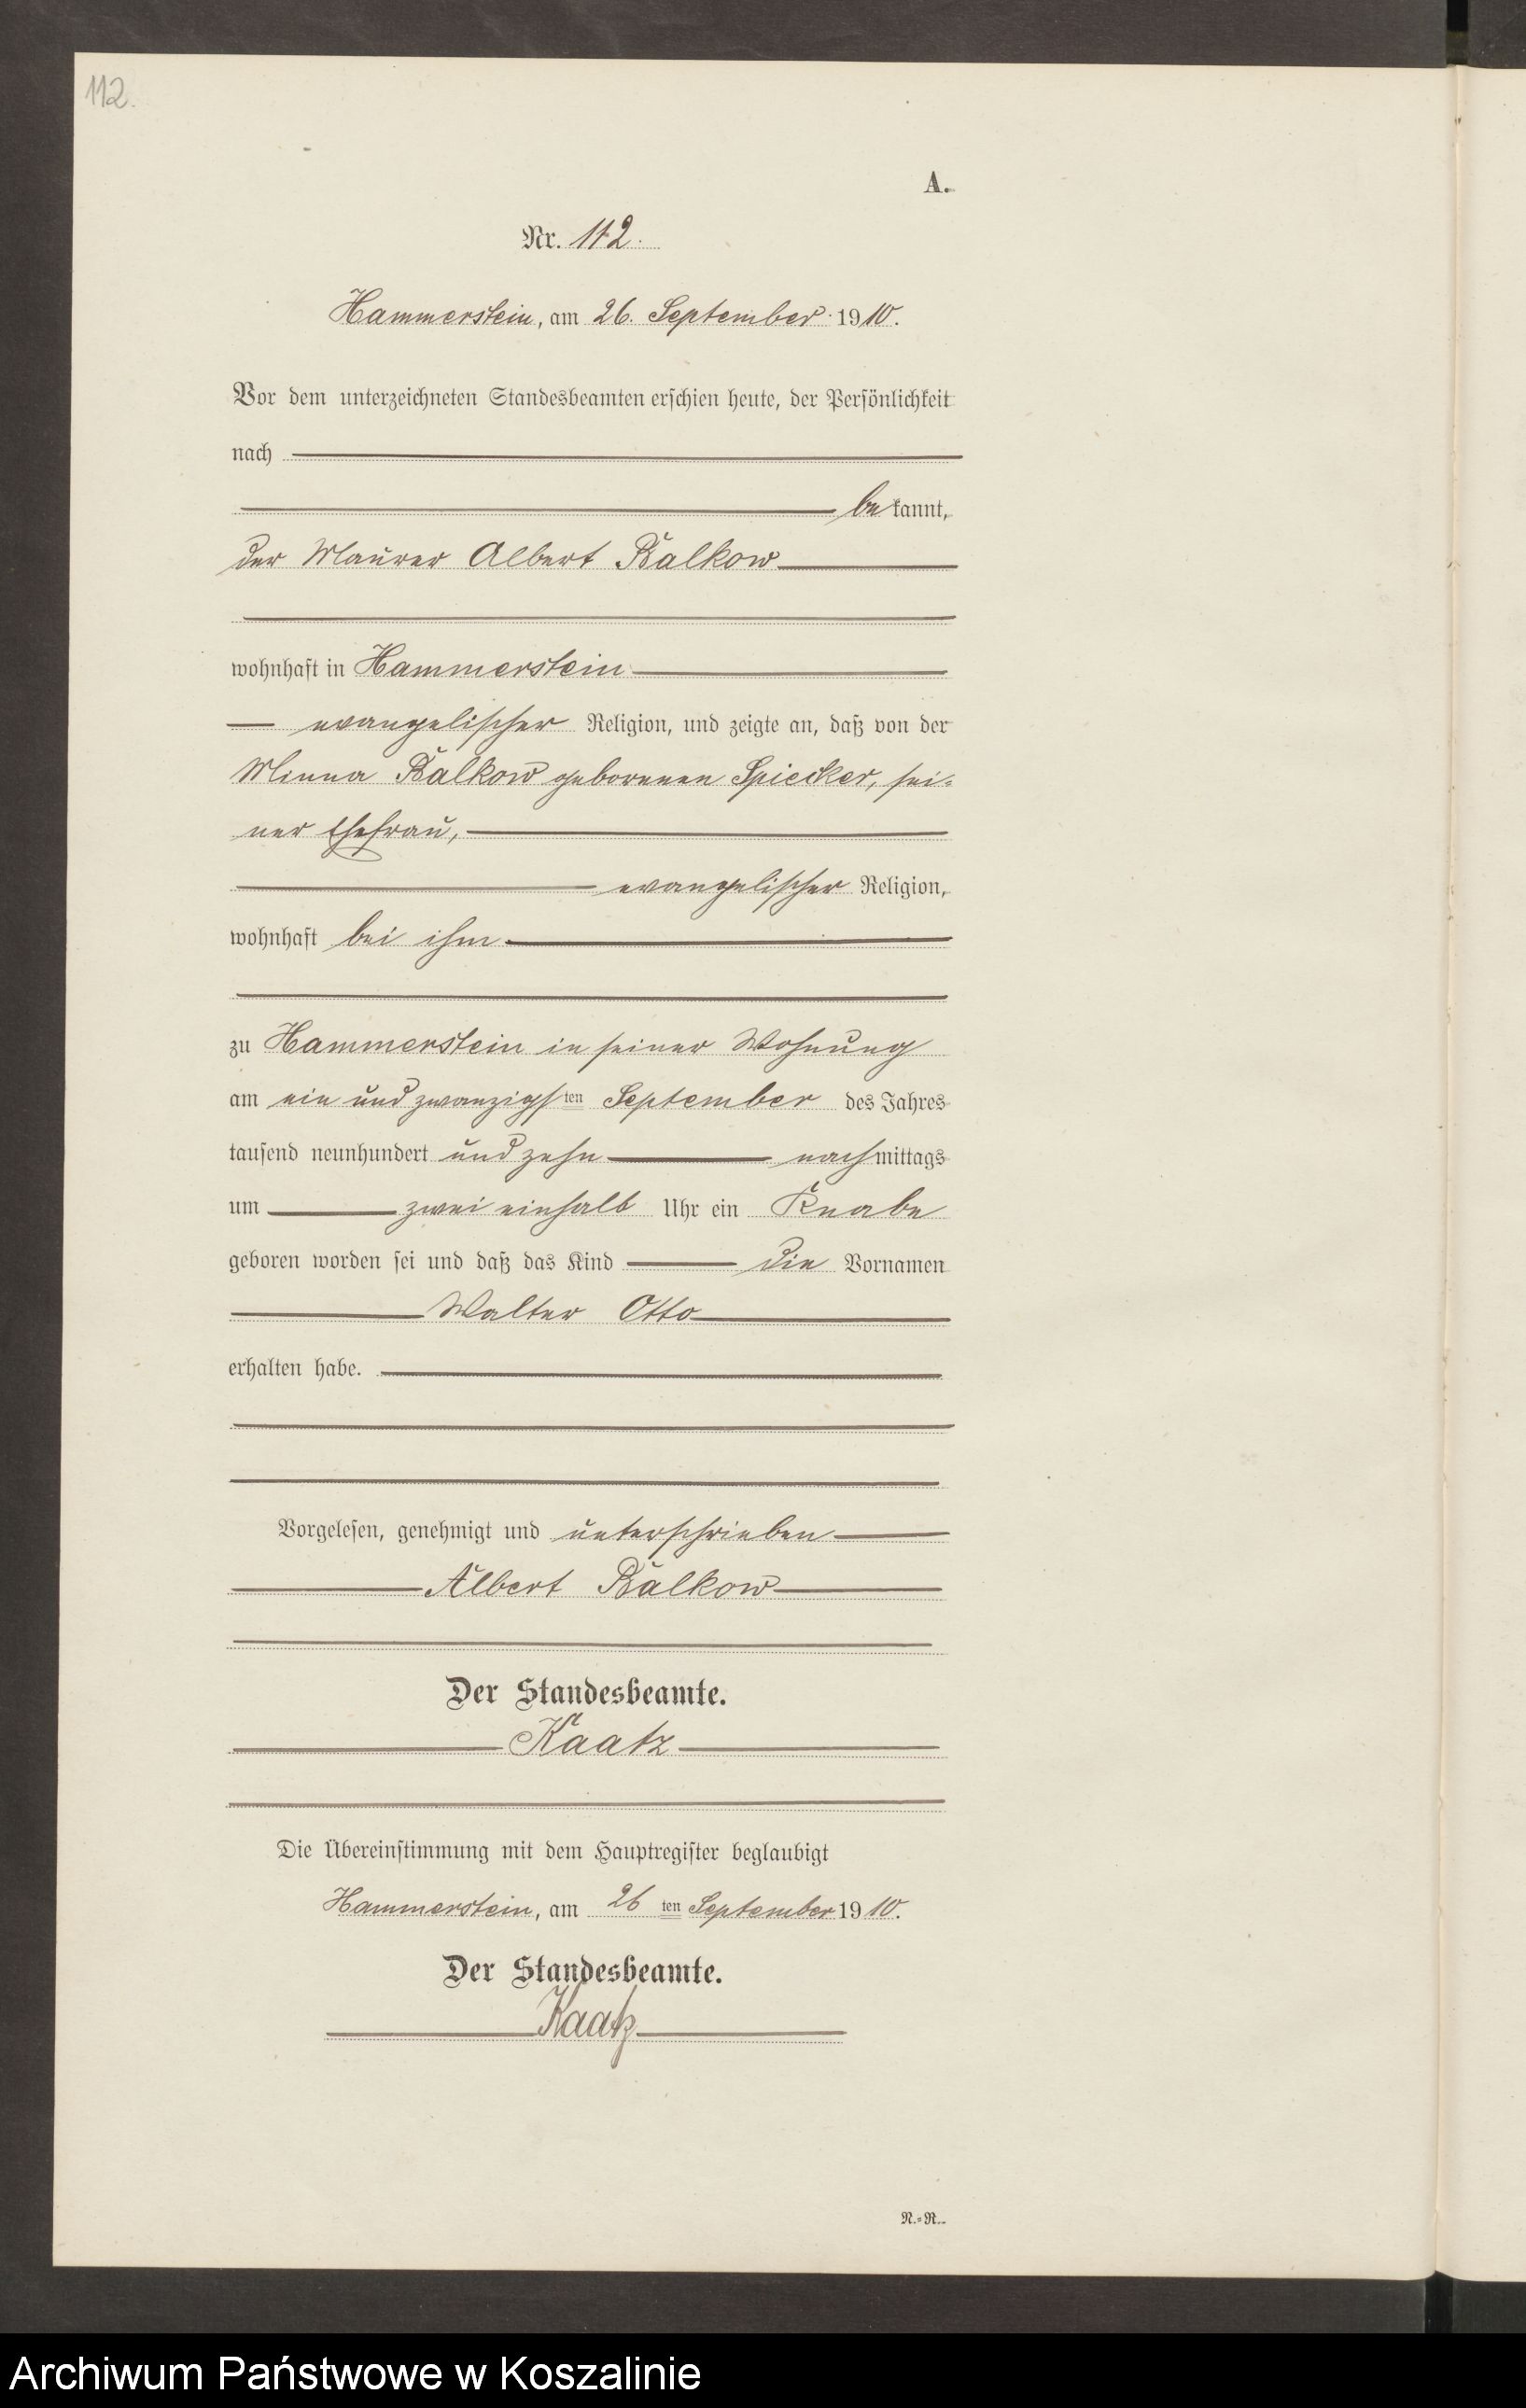 112.
A.
Nr. 112.
Hammerstein, am 26. September 1910.
Vor dem unterzeichneten Standesbeamten erschien heute, der Persönlichkeit
nach
bekannt,
der Maurer Albert Balkow
wohnhaft in Hammerstein
evangelischer Religion, und zeigte an, daß von der
Minna Balkow geborenen Spiecker, sei-
ner Ehefrau,
evangelischer Religion,
wohnhaft bei ihm
zu Hammerstein in seiner Wohnung
am ein und zwanzigsten September des Jahres
tausend neunhundert und zehn nachmittags
um zwei einhalb Uhr ein Knabe
geboren worden sei und daß das Kind die Vornamen
Walter Otto
erhalten habe.
Vorgelesen, genehmigt und unterschrieben
Albert Balkow
Der Standesbeamte.
Kaatz
Die Übereinstimmung mit dem Hauptregister beglaubigt
Hammerstein, am 26ten September 1910.
Der Standesbeamte.
Kaatz
N.-R.
Archiwum Państwowe w Koszalinie